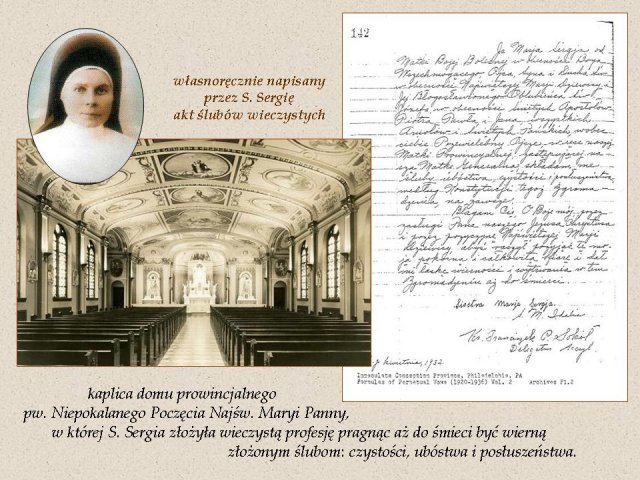 własnoręcznie napisany
przez S. Sergię
akt ślubów wieczystych
142
Ja Marja Sergja od
Matki Bożej Bolesnej w obecności Boga
Wszechmogącego Ojca, Syna i Ducha Św.
w obecności Najświętszej Marji Dziewicy i
Jej Błogosławionego Oblubieńca Św.
Józefa w obecności świętych Apostołów
Piotra, Pawła i Jana, wszystkich
Aniołów i Świętych Pańskich, wobec
ciebie Przewielebny Ojcze, w ręce naszej
Matki Prowincjalnej, zastępującej na-
szą Matkę Generalną składam me
śluby ubóstwa, czystości i posłuszeństwa
według Konstytucji tegoż Zgroma-
dzenia na zawsze.
Błagam Cię, O Boże mój, przez
zasługi Pana naszego Jezusa Chrystusa
i przez przyczynę Najświętszej Marji
Dziewicy, abyś raczył przyjąć tę mo-
ją i całkowitą ofiarę i dał
mi łaskę wierności i wytrwania w tem
Zgromadzeniu aż do śmierci.
Siostra Marja Sergja
S. M. Idalia
Ks. Franciszek P. Sokół
Delegatus
kwietnia, 1932
Immaculate Conception Province, Philadelphia, PA
Formulas of Perpetual Vows (1920-1936) Vol. 2 Archives F1.2
kaplica domu prowincjalnego
pw. Niepokalanego Poczęcia Najśw. Maryi Panny,
w której S. Sergia złożyła wieczystą profesję pragnąc aż do śmieci być wierną
złożonym ślubom: czystości, ubóstwa i posłuszeństwa.